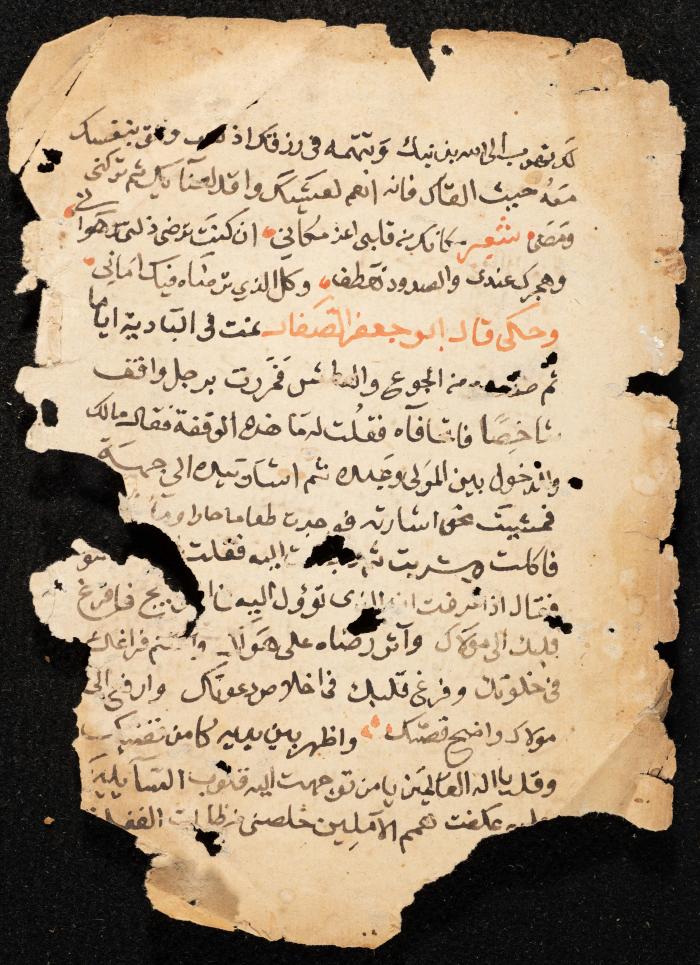 الى الله بذنبك وتتهمه فى رزقك اذ وتثق بنفسك
معه حيث القاك فانه انعم لعيشك واقل لعنايك ثم تركنى
ومضى شعر مكانك من قلبى اعز مكانى ان كنت ترضى ذلتى وهوانى
وهجرك عندى والصدود تعطف وكل الذي ترضاه فيك امانى
وحكى قال ابو جعفر الصفار تهت فى البادية اياما
ثم من الجوع والعطش فمررت برجل واقف
شاخصا فاتحا فاه فقلت له ما هذه الوقفة فقال مالك
والدخول بين المولى وعبده ثم اشار بيده الى جهة
فمشيت نحو اشارته فوجدت طعاما حارا وماء
فاكلت وشربت ثم اليه فقلت
فقال اذا عرفت ان الذى تؤول اليه فافرغ
قلبك الى مولاك وآثر رضاه على هواك واغتنم فراغك
فى خلوتك وفرغ قلبك فى اخلاص دعوتك وارفع الى
مولاك واضح قصتك واظهر بين يديه كامن
وقل يا اله العالمين يا من توجهت اليه قلوب السآيلين
عليه عكفت همم الآملين خلصنى من ظلمات الغفلة